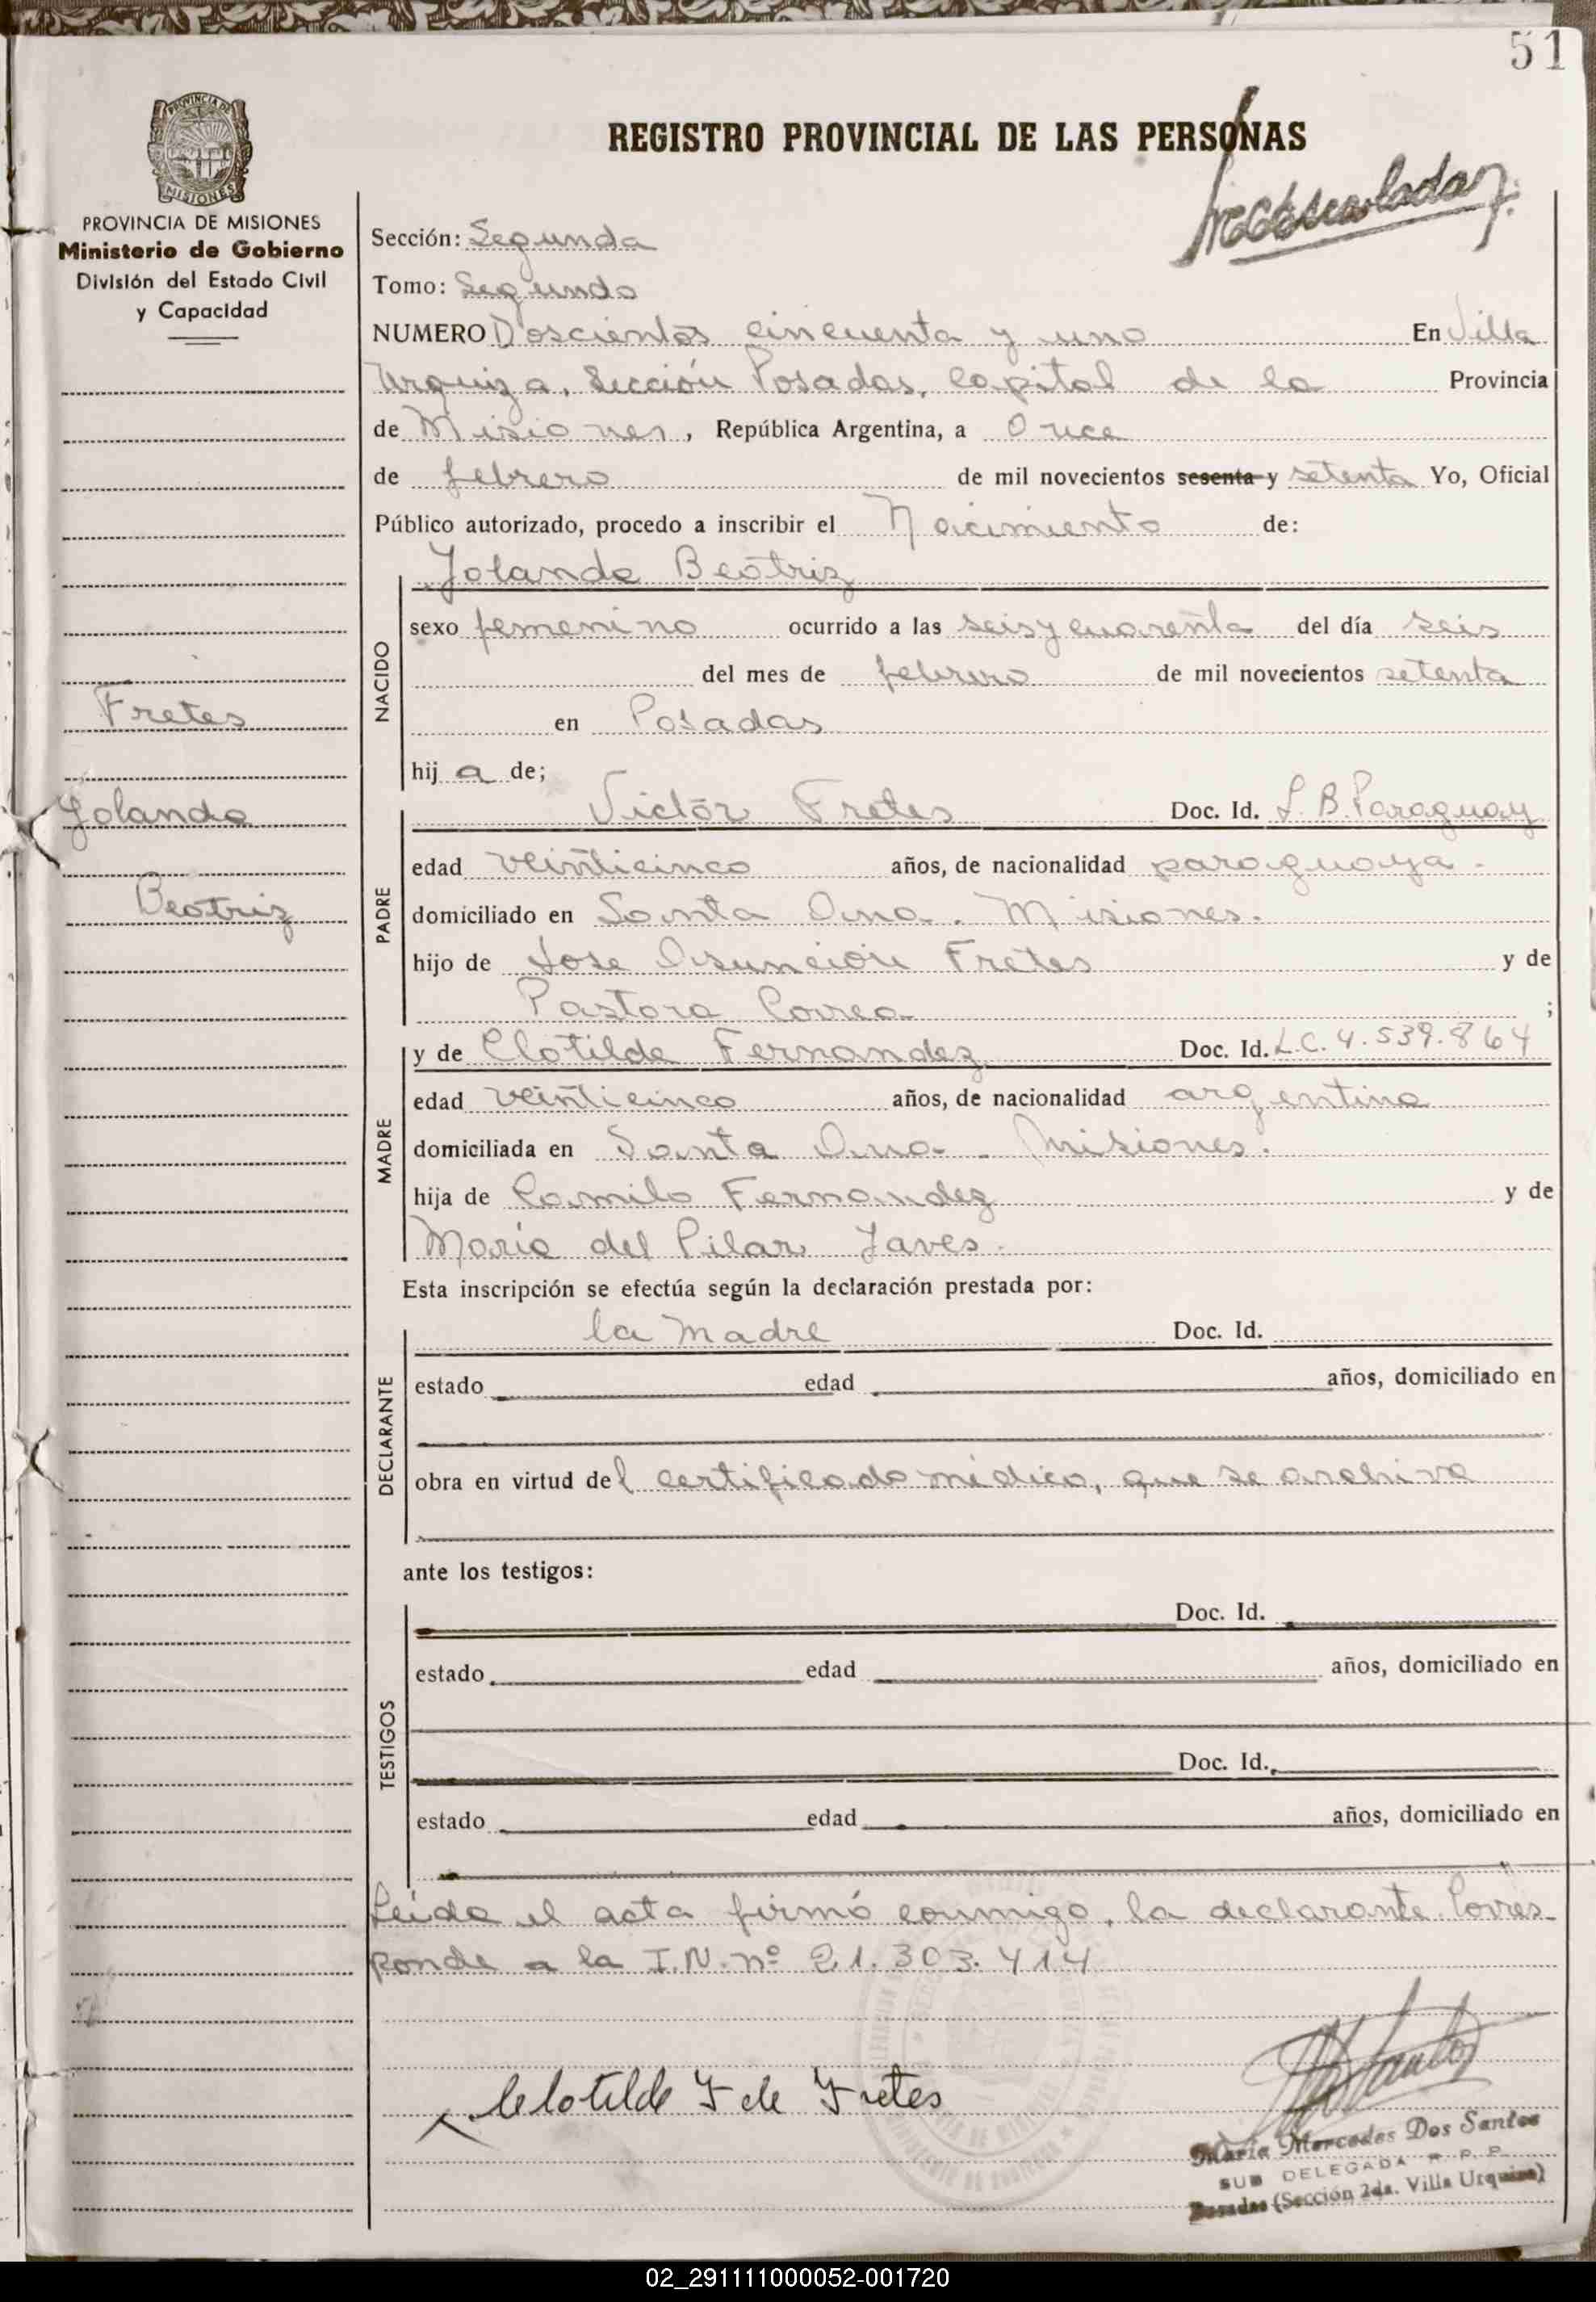 51
PROVINCIA DE
MISIONES
REGISTRO PROVINCIAL DE LAS PERSONAS
PROVINCIA DE MISIONES
Ministerio de Gobierno
División del Estado Civil
y Capacidad
Sección: Segunda
Tomo: Segundo
NUMERO Doscientos cincuenta y uno En Villa
Urquiza, Sección Posadas, Capital de la Provincia
de Misiones, República Argentina, a Once
de febrero de mil novecientos sesenta y setenta Yo, Oficial
Público autorizado, procedo a inscribir el Nacimiento de:
Yolanda Beatriz
NACIDO
sexo femenino ocurrido a las seis y cuarenta del día seis
del mes de febrero de mil novecientos setenta
en Posadas
hij a de;
Fretes
Yolanda
Beatriz
PADRE
Victor Fretes Doc. Id. L.B. Paraguay
edad veinticinco años, de nacionalidad paraguaya.
domiciliado en Santa Ana. Misiones.
hijo de Jose Asunción Fretes y de
Pastora Correa ;
MADRE
y de Clotilde Fernandez Doc. Id. L.C. 4.539.864
edad veinticinco años, de nacionalidad argentina
domiciliada en Santa Ana - Misiones.
hija de Camilo Fernandez y de
Maria del Pilar Javes.
Esta inscripción se efectúa según la declaración prestada por:
DECLARANTE
la madre Doc. Id.
estado edad años, domiciliado en
obra en virtud del certificado médico, que se archiva
ante los testigos:
TESTIGOS
Doc. Id.
estado edad años, domiciliado en
Doc. Id.
estado edad años, domiciliado en
Leída el acta firmó conmigo, la declarante. Corres-
ponde a la I.N. nº 21.303.414
Clotilde F de Fretes
Maria Mercedes Dos Santos
SUB DELEGADA R. P. P.
Posadas (Sección 2da. Villa Urquiza)
02_291111000052-001720